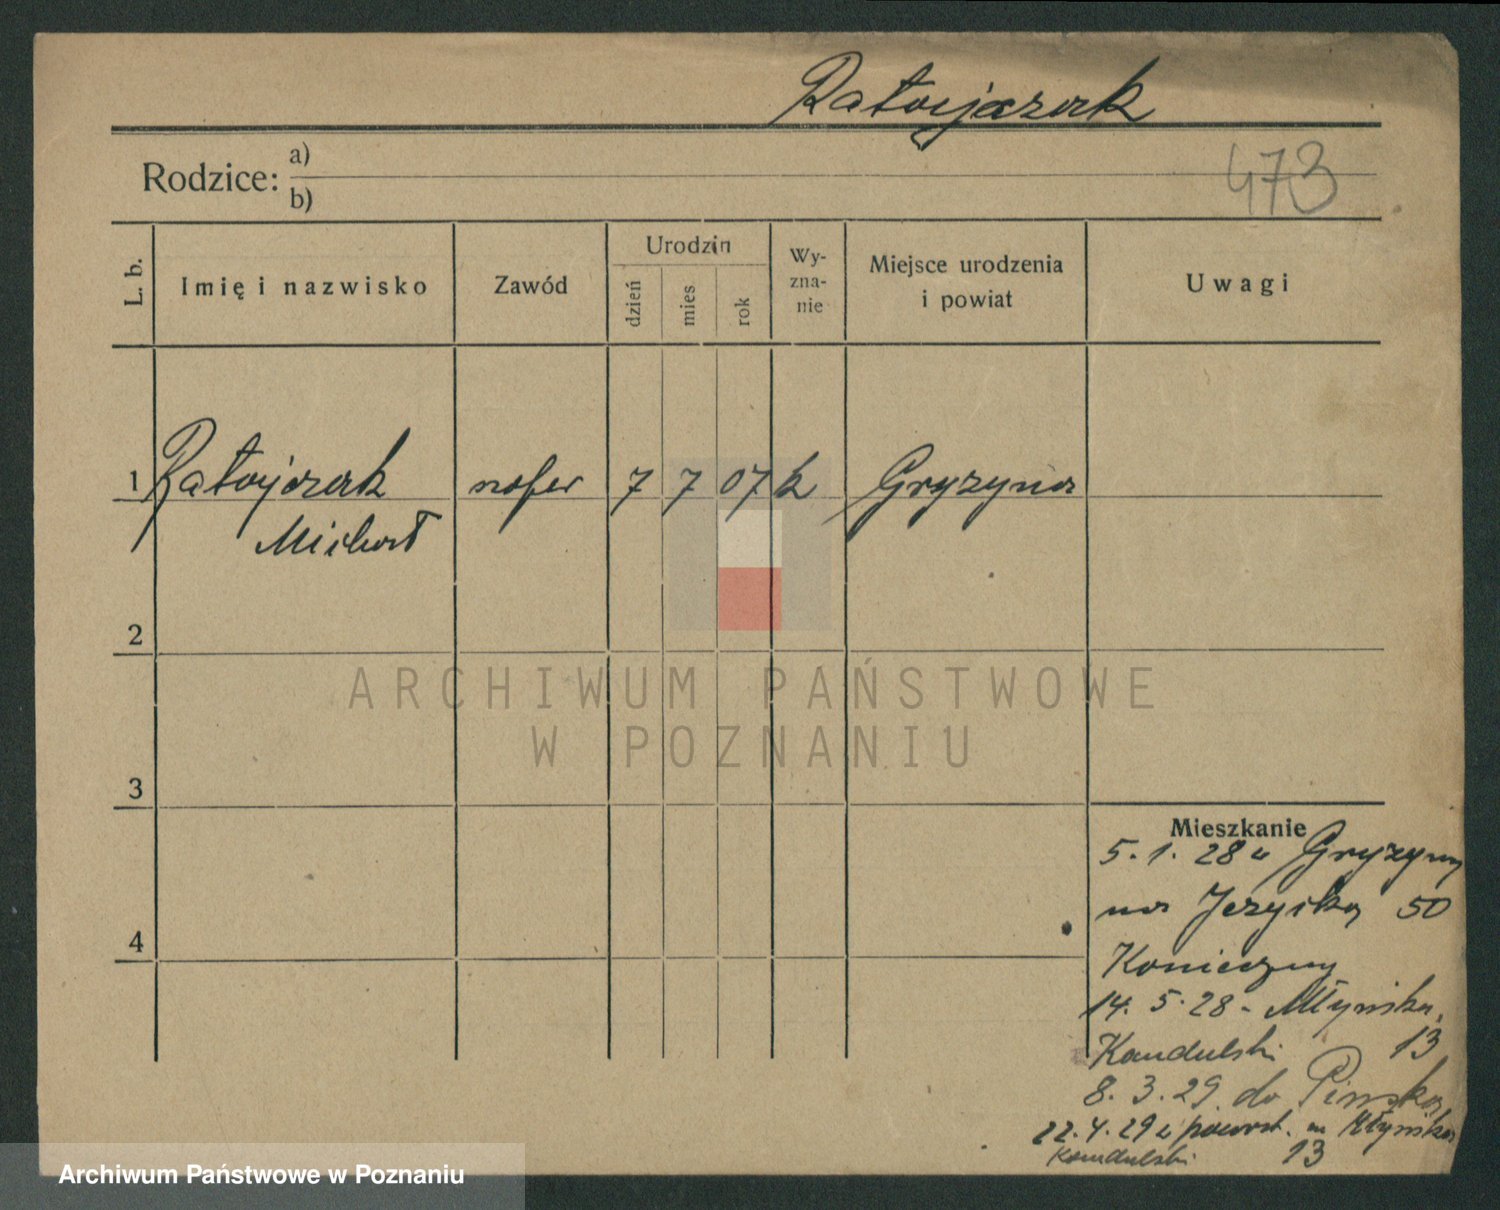 Ratajczak
473
Rodzice: a)
b)
L. b.
Imię i nazwisko
Zawód
Urodzin
dzień
mies
rok
Wy-
zna-
nie
Miejsce urodzenia
i powiat
Uwagi
1 Ratajczak szofer 7 7 07 k Gryżyna
Michał
2
3
4
Mieszkanie
5. 1. 28 z Gryżyny
na Jeżycka 50
Konieczny
14. 5. 28 - Młyńska
Kandulski 13
8. 3. 29 do Pińska
22. 4. 29 z powrot. Młyńska
Kandulski 13
ARCHIWUM PAŃSTWOWE
W POZNANIU
Archiwum Państwowe w Poznaniu